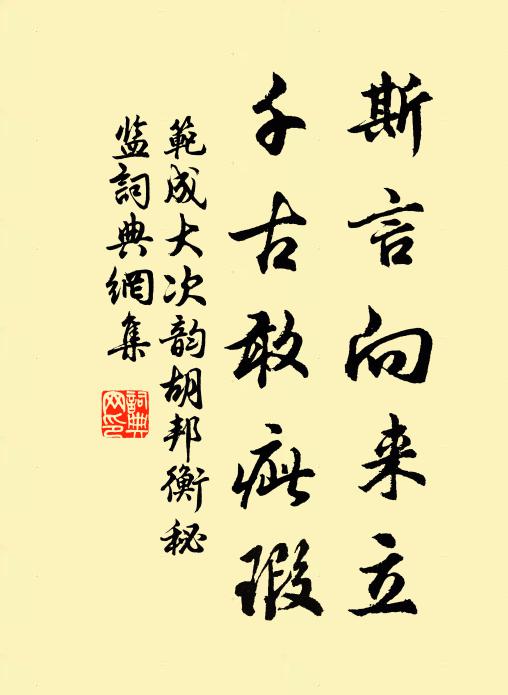 斯言向来立
千古敢疵瑕
範成大次韵胡邦衡秘
监詞典網集
詞典网印